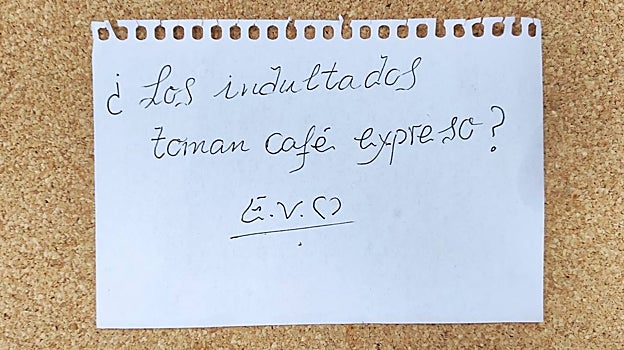 ¿ Los indultados
toman café expreso?
E.V.O